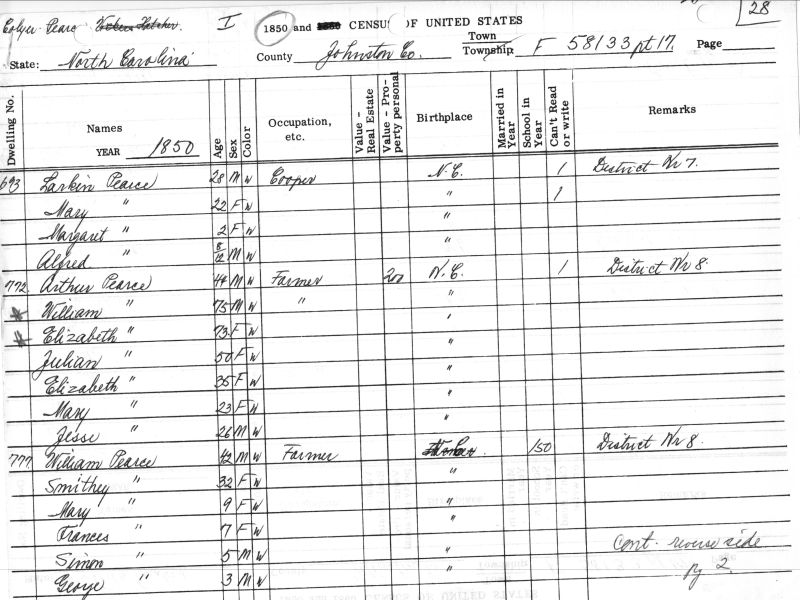 Colyer Pearc I 1850 and CENSUS OF UNITED STATES 28
State: North Carolina County Johnston Co. Town Township F 58/33 pt 17. Page
Dwelling No. Names YEAR 1850 Age Sex Color Occupation, etc. Value - Real Estate Value - Property personal Birthplace Married in Year School in Year Can't Read or write Remarks
693 Larkin Pearce 28 M W Cooper N.C. 1 District Nr 7.
Mary " 22 F W " 1
Margaret " 2 F W "
Alfred 8/12 M W "
772 Arthur Pearce 44 M W Farmer 200 N.C. 1 District Nr 8
William " 75 M W " "
Elizabeth " 73 F W "
Julian " 50 F W "
Elizabeth " 35 F W "
Mary " 23 F W "
Jesse " 26 M W
777 William Pearce 42 M W Farmer 150 District Nr 8.
Smithey " 32 F W "
Mary " 9 F W "
Frances " 7 F W "
Simon " 5 M W " cont. reverse side
George " 3 M W " pg 2.